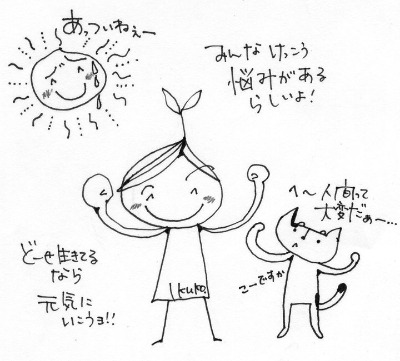 あっついねぇー
みんな けっこう
悩みがある
らしいよ!
へ〜人間って
大変だぁー…
こーですか
どーせ生きてる
なら
元気に
いこうョ!!
Ikuko.